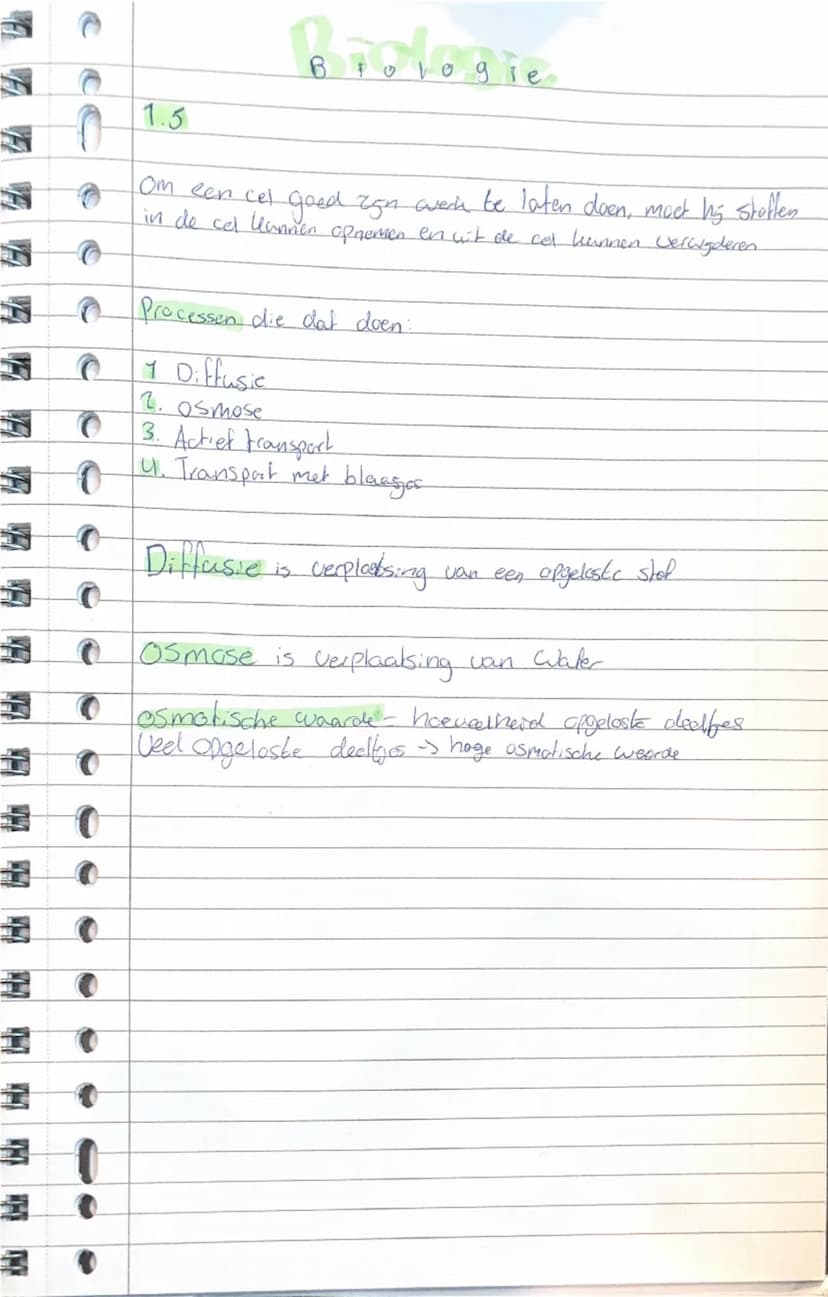 Biologie
1.5
Om een cel goed zijn werk te laten doen, moet hij stoffen
in de cel kunnen opnemen en uit de cel kunnen verwijderen
Processen die dat doen:
1 Diffusie
2. osmose
3. Actief transport
4. Transport met blaasjes
Diffusie is verplaatsing van een opgeloste stof
Osmose is verplaatsing van water
osmotische waarde = hoeveelheid opgeloste deeltjes
Veel opgeloste deeltjes -> hoge osmotische waarde